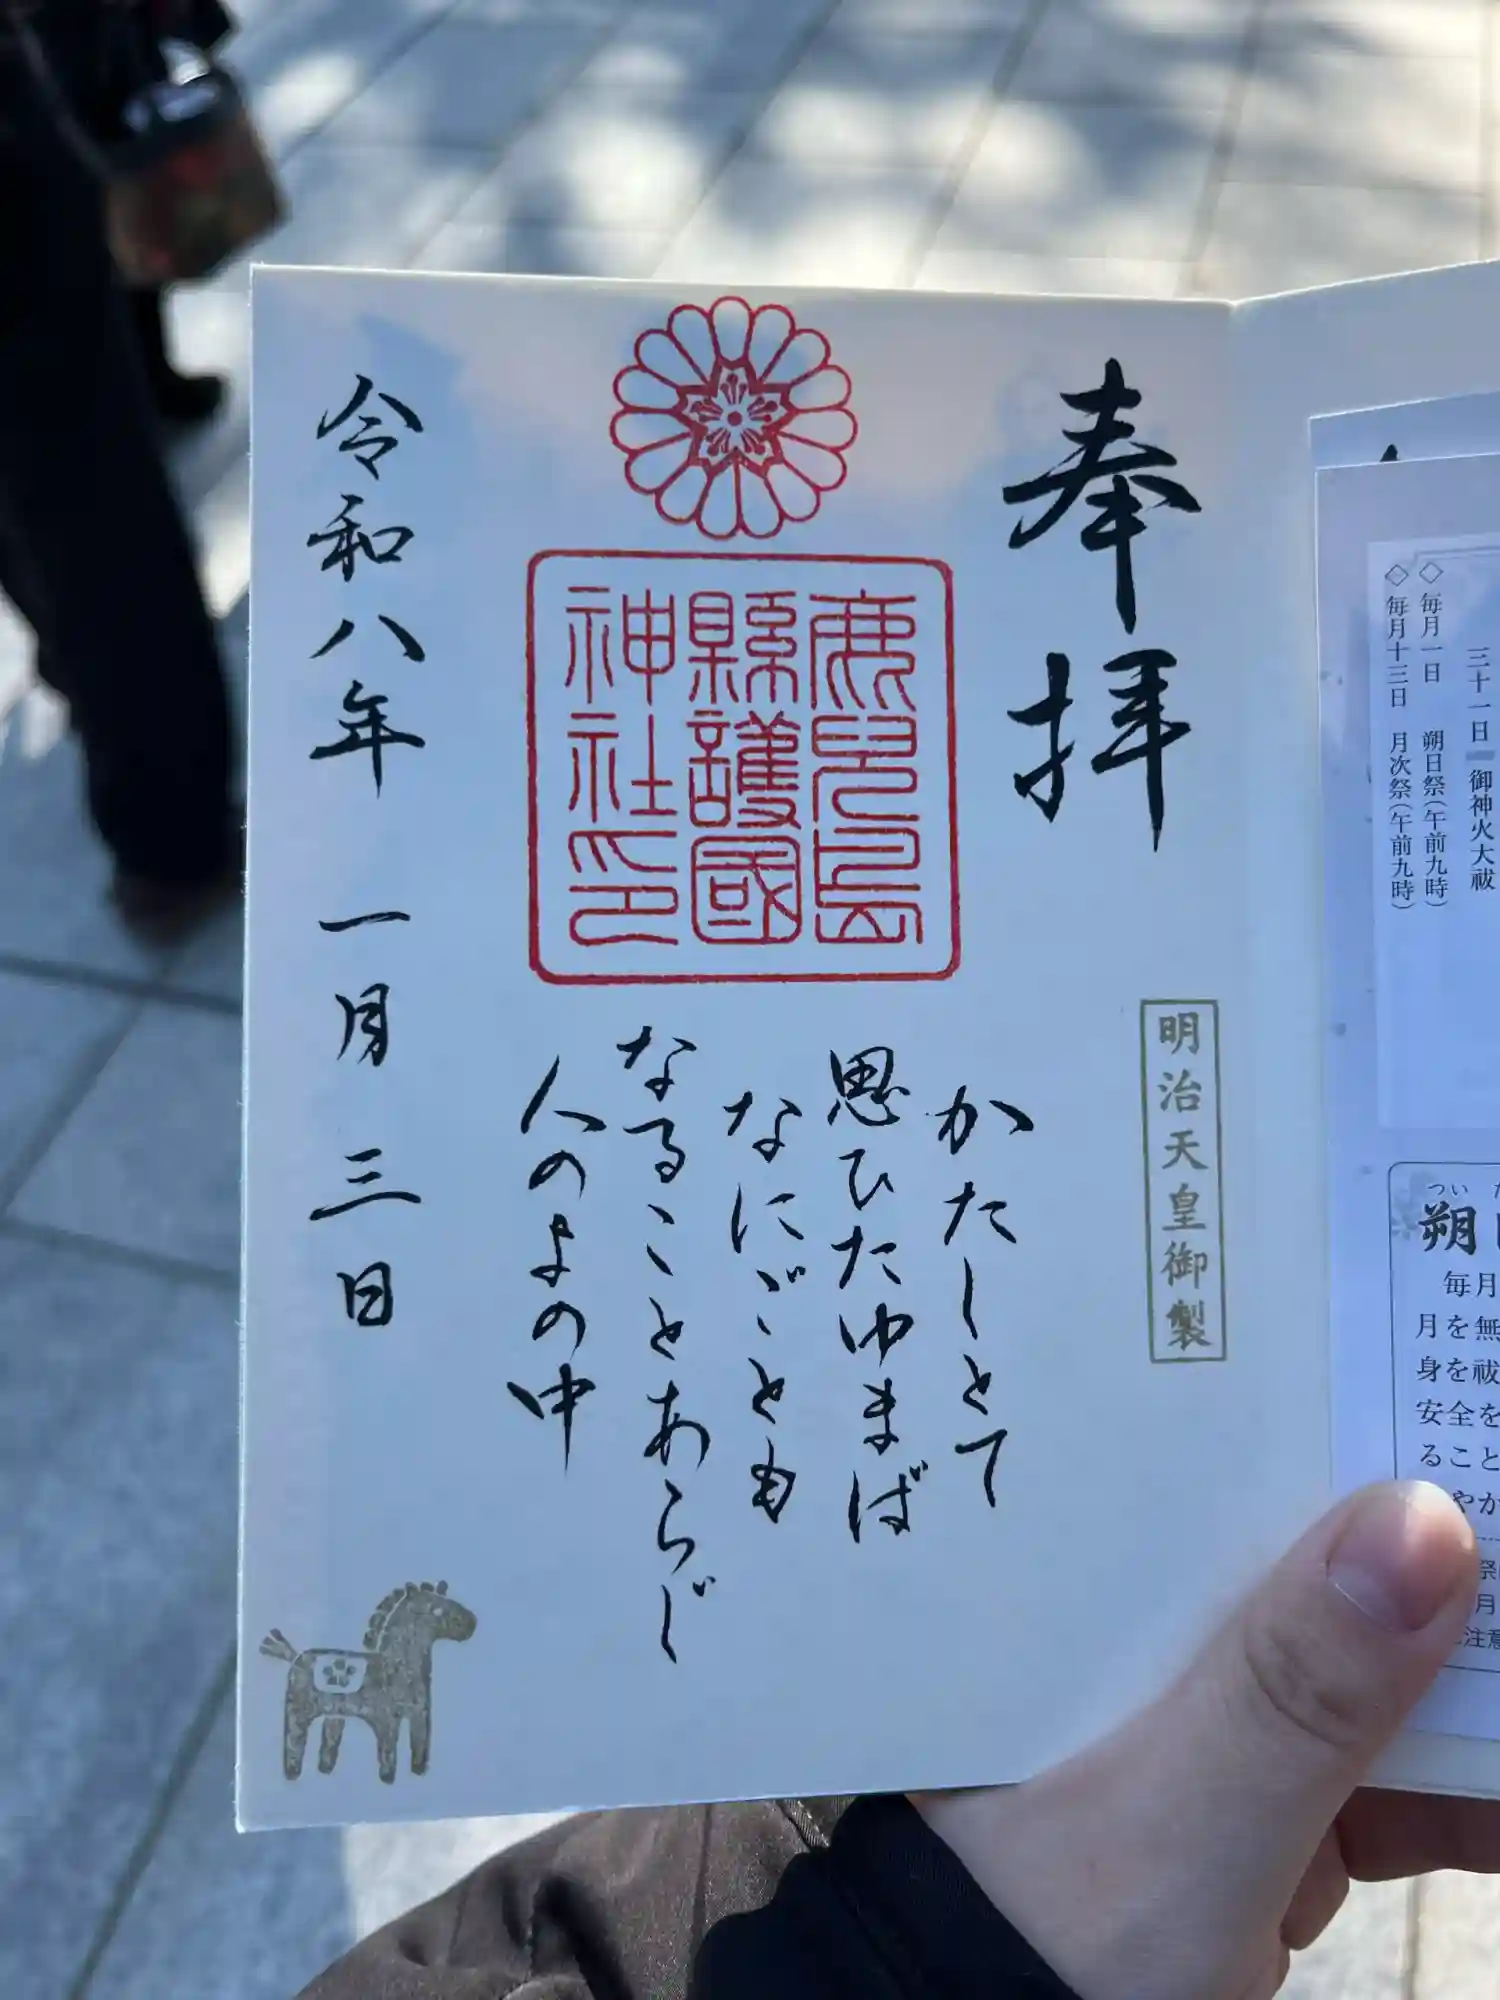 奉拝
明治天皇御製
鹿兒島
縣護國
神社印
かたしとて
思ひたゆまば
なにごとも
なることあらじ
人のよの中
令和八年 一月 三日
三十一日 御神火大祓
◇毎月一日 朔日祭(午前九時)
◇毎月十三日 月次祭(午前九時)
ついた
朔
毎月
月を無
身を祓
安全を
ること
やか
月
注意